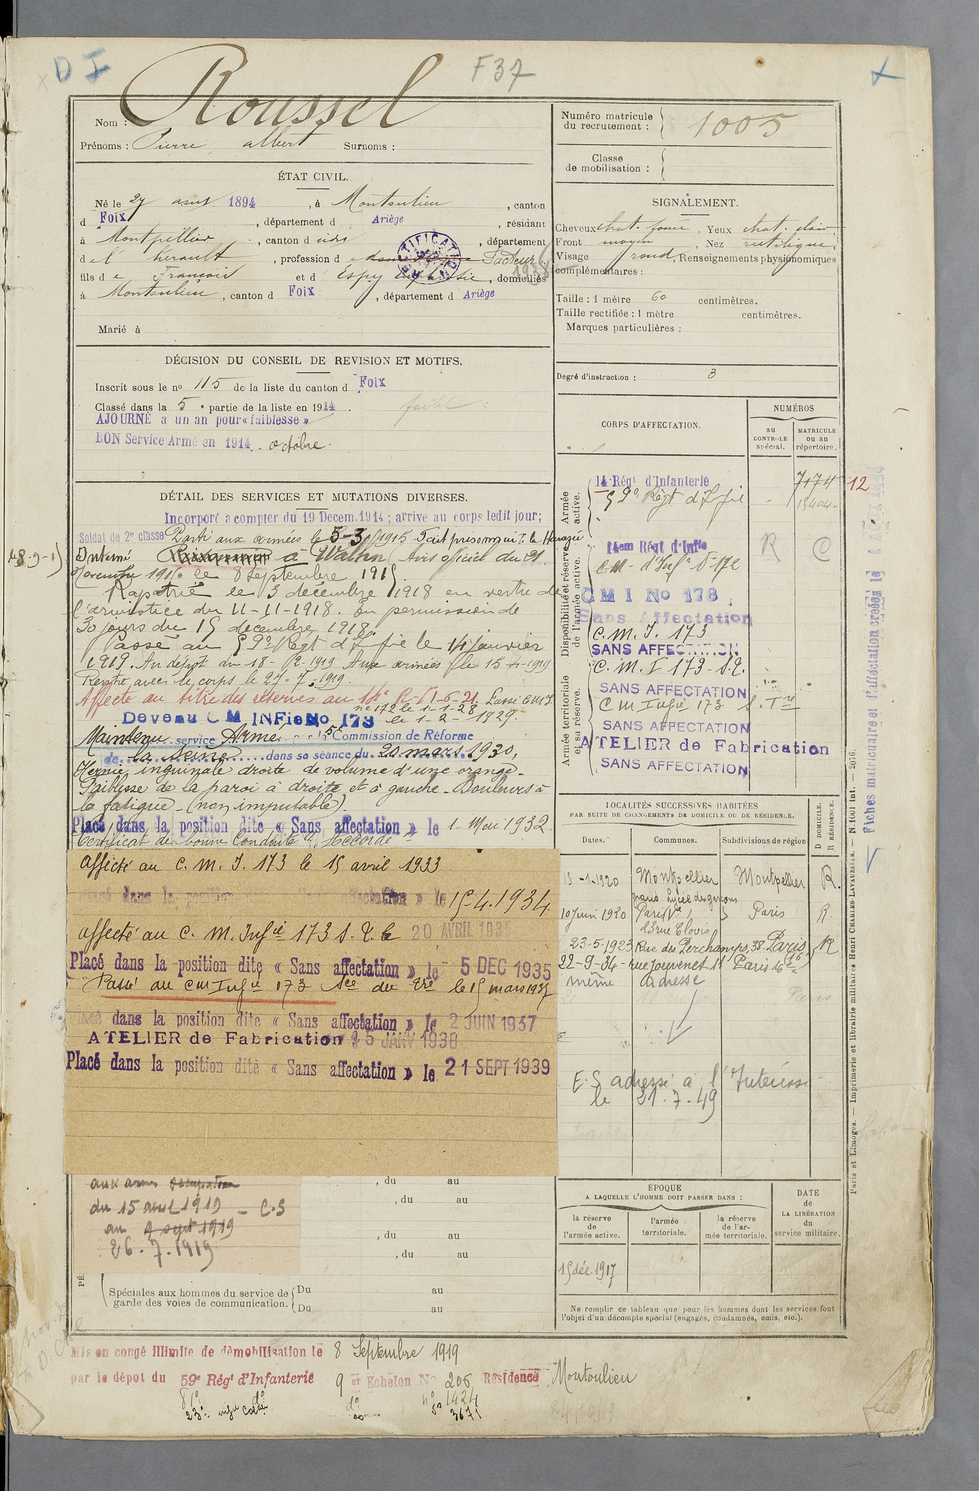 D I
F 37
Nom : Roussel
Prénoms : Pierre, Albert Surnoms :
Numéro matricule du recrutement : 1005
Classe de mobilisation :
ÉTAT CIVIL.
Né le 27 1894, à Montoulieu, canton
d Foix, département d Ariège, résidant
à Montpellier, canton d udit, département
d e l'hérault, profession d Facteur
fils d e François et d Espy, domiciliés
à Montoulieu, canton d Foix, département d Ariège
Marié à
CERTIFICAT
SIGNALEMENT.
Cheveux chat. foncé, Yeux chat. clair
Front moyen, Nez rectiligne
Visage rond, Renseignements physionomiques
complémentaires :
Taille : 1 mètre 60 centimètres.
Taille rectifiée : 1 mètre centimètres.
Marques particulières :
Degré d'instruction : 3
DÉCISION DU CONSEIL DE REVISION ET MOTIFS.
Inscrit sous le no 115 de la liste du canton d Foix
Classé dans la 5e partie de la liste en 1914. faible
AJOURNÉ à un an pour « faiblesse »
BON Service Armé en 1914. octobre.
DÉTAIL DES SERVICES ET MUTATIONS DIVERSES.
Incorporé à compter du 19 Décem. 1914 ; arrivé au corps ledit jour ;
Soldat de 2e classe Parti aux armées le 5-3-1915. Fait prisonnier
Interné à Wahn (Avis officiel du 21
Novembre 191 le 8 septembre 191
Rapatrié le 3 décembre 1918 en vertu de
l'armistice du 11-11-1918. En permission de
30 jours du 15 décembre 1918.
Passé au 59e Régt d'Ifie le 14 Janvier
1919. Au dépôt du 18- -1919 Aux armées le 15-4-1919
Rentré avec le corps le 27-7-1919.
Affecté au titre des réserves au 14e R.I. 1-6-21. Passé C.M.I.
no 172 le 1-1-28
Devenu C M INFie No 173 le 1-2-1929
Maintenu service Armé par la 5 Commission de Réforme
de la Seine dans sa séance du 20 mars 1930,
Hernie inguinale droite de volume d'une orange.
Faiblesse de la paroi à droite et à gauche. Douleurs à
la fatigue (non imputable)
Placé dans la position dite « Sans affectation » le 1 Mai 1932
Certificat de bonne Conduite "Accordé"
affecté au C. M. I. 173 le 15 avril 1933
Placé dans la position dite « Sans affectation » le 15.4.1934
affecté au C. M. Infie 173 S.R. le 20 AVRIL 193
Placé dans la position dite « Sans affectation » le 5 DEC 1935
Passé au CM Infie 173 le 15 mars 1937
Placé dans la position dite « Sans affectation » le 2 JUIN 1937
ATELIER de Fabrication 15 JANV 1938
Placé dans la position dite « Sans affectation » le 21 SEPT 1939
aux armées occupation
du 15 avril 1919 - C.S
au 9 sept 1919
26.7.1919
, du au
, du au
, du au
, du au
Spéciales aux hommes du service de garde des voies de communication.
Du au
Du au
CORPS D'AFFECTATION.
NUMÉROS
au CONTRÔLE spécial.
MATRICULE ou au répertoire.
Armée active.
14 Régt d'Infanterie 7174 12
59e Régt d'Ifie
Disponibilité et réserve de l'armée active.
14em Régt d'Infie R C
C.M. d'Infie No 172
C M I No 173
Sans Affectation
C. M. I. 173
SANS AFFECTATION
C. M. I 173 S.R.
Armée territoriale et sa réserve.
SANS AFFECTATION
C M Infie 173
SANS AFFECTATION
ATELIER de Fabrication
SANS AFFECTATION
LOCALITÉS SUCCESSIVES HABITÉES
PAR SUITE DE CHANGEMENTS DE DOMICILE OU DE RÉSIDENCE.
Dates. Communes. Subdivisions de région
D DOMICILE. R RÉSIDENCE.
15-1-1920 Montpellier Montpellier R.
grand Lycée des garçons
10 juin 1920 Paris Ve Paris R
23 rue Clovis
23-5-1923 Rue des Perchamps, 38. Paris 16e R
22-9-34- rue Jouvenet 11 Paris 16e
même adresse
E.S adressé à l'Intéressé
le 21.7.49
ÉPOQUE
A LAQUELLE L'HOMME DOIT PASSER DANS :
DATE de LA LIBÉRATION du service militaire.
la réserve de l'armée active.
l'armée territoriale.
la réserve de l'armée territoriale.
15 déc. 1917
Ne remplir ce tableau que pour les hommes dont les services font
l'objet d'un décompte spécial (engagés, condamnés, omis, etc.).
Paris et Limoges. — Imprimerie et librairie militaires Henri CHARLES-LAVAUZELLE.
Fiches matriculaire et d'affectation créées le
Mis en congé illimité de démobilisation le 8 Septembre 1919
par le dépôt du 59e Régt d'Infanterie 9 er Echelon No 206 Résidence Montoulieu
do no 1424